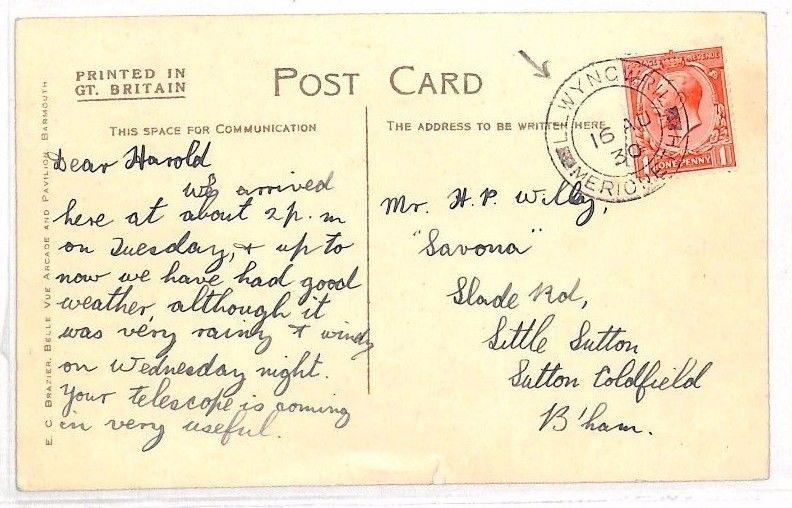 PRINTED IN
GT. BRITAIN
POST CARD
THIS SPACE FOR COMMUNICATION
THE ADDRESS TO BE WRITTEN HERE
E. C. BRAZIER, BELLE VUE ARCADE AND PAVILION, BARMOUTH
Dear Harold
We arrived
here at about 2 p.m
on Tuesday, & up to
now we have had good
weather, although it
was very rainy & windy
on Wednesday night.
Your telescope is coming
in very useful.
Mr. H. P. Willey,
"Savona"
Slade Rd,
Little Sutton
Sutton Coldfield
B'ham.
LLWYNGWRIL
16 AU
30
MERIONETH
POSTAGE REVENUE
ONE PENNY 1